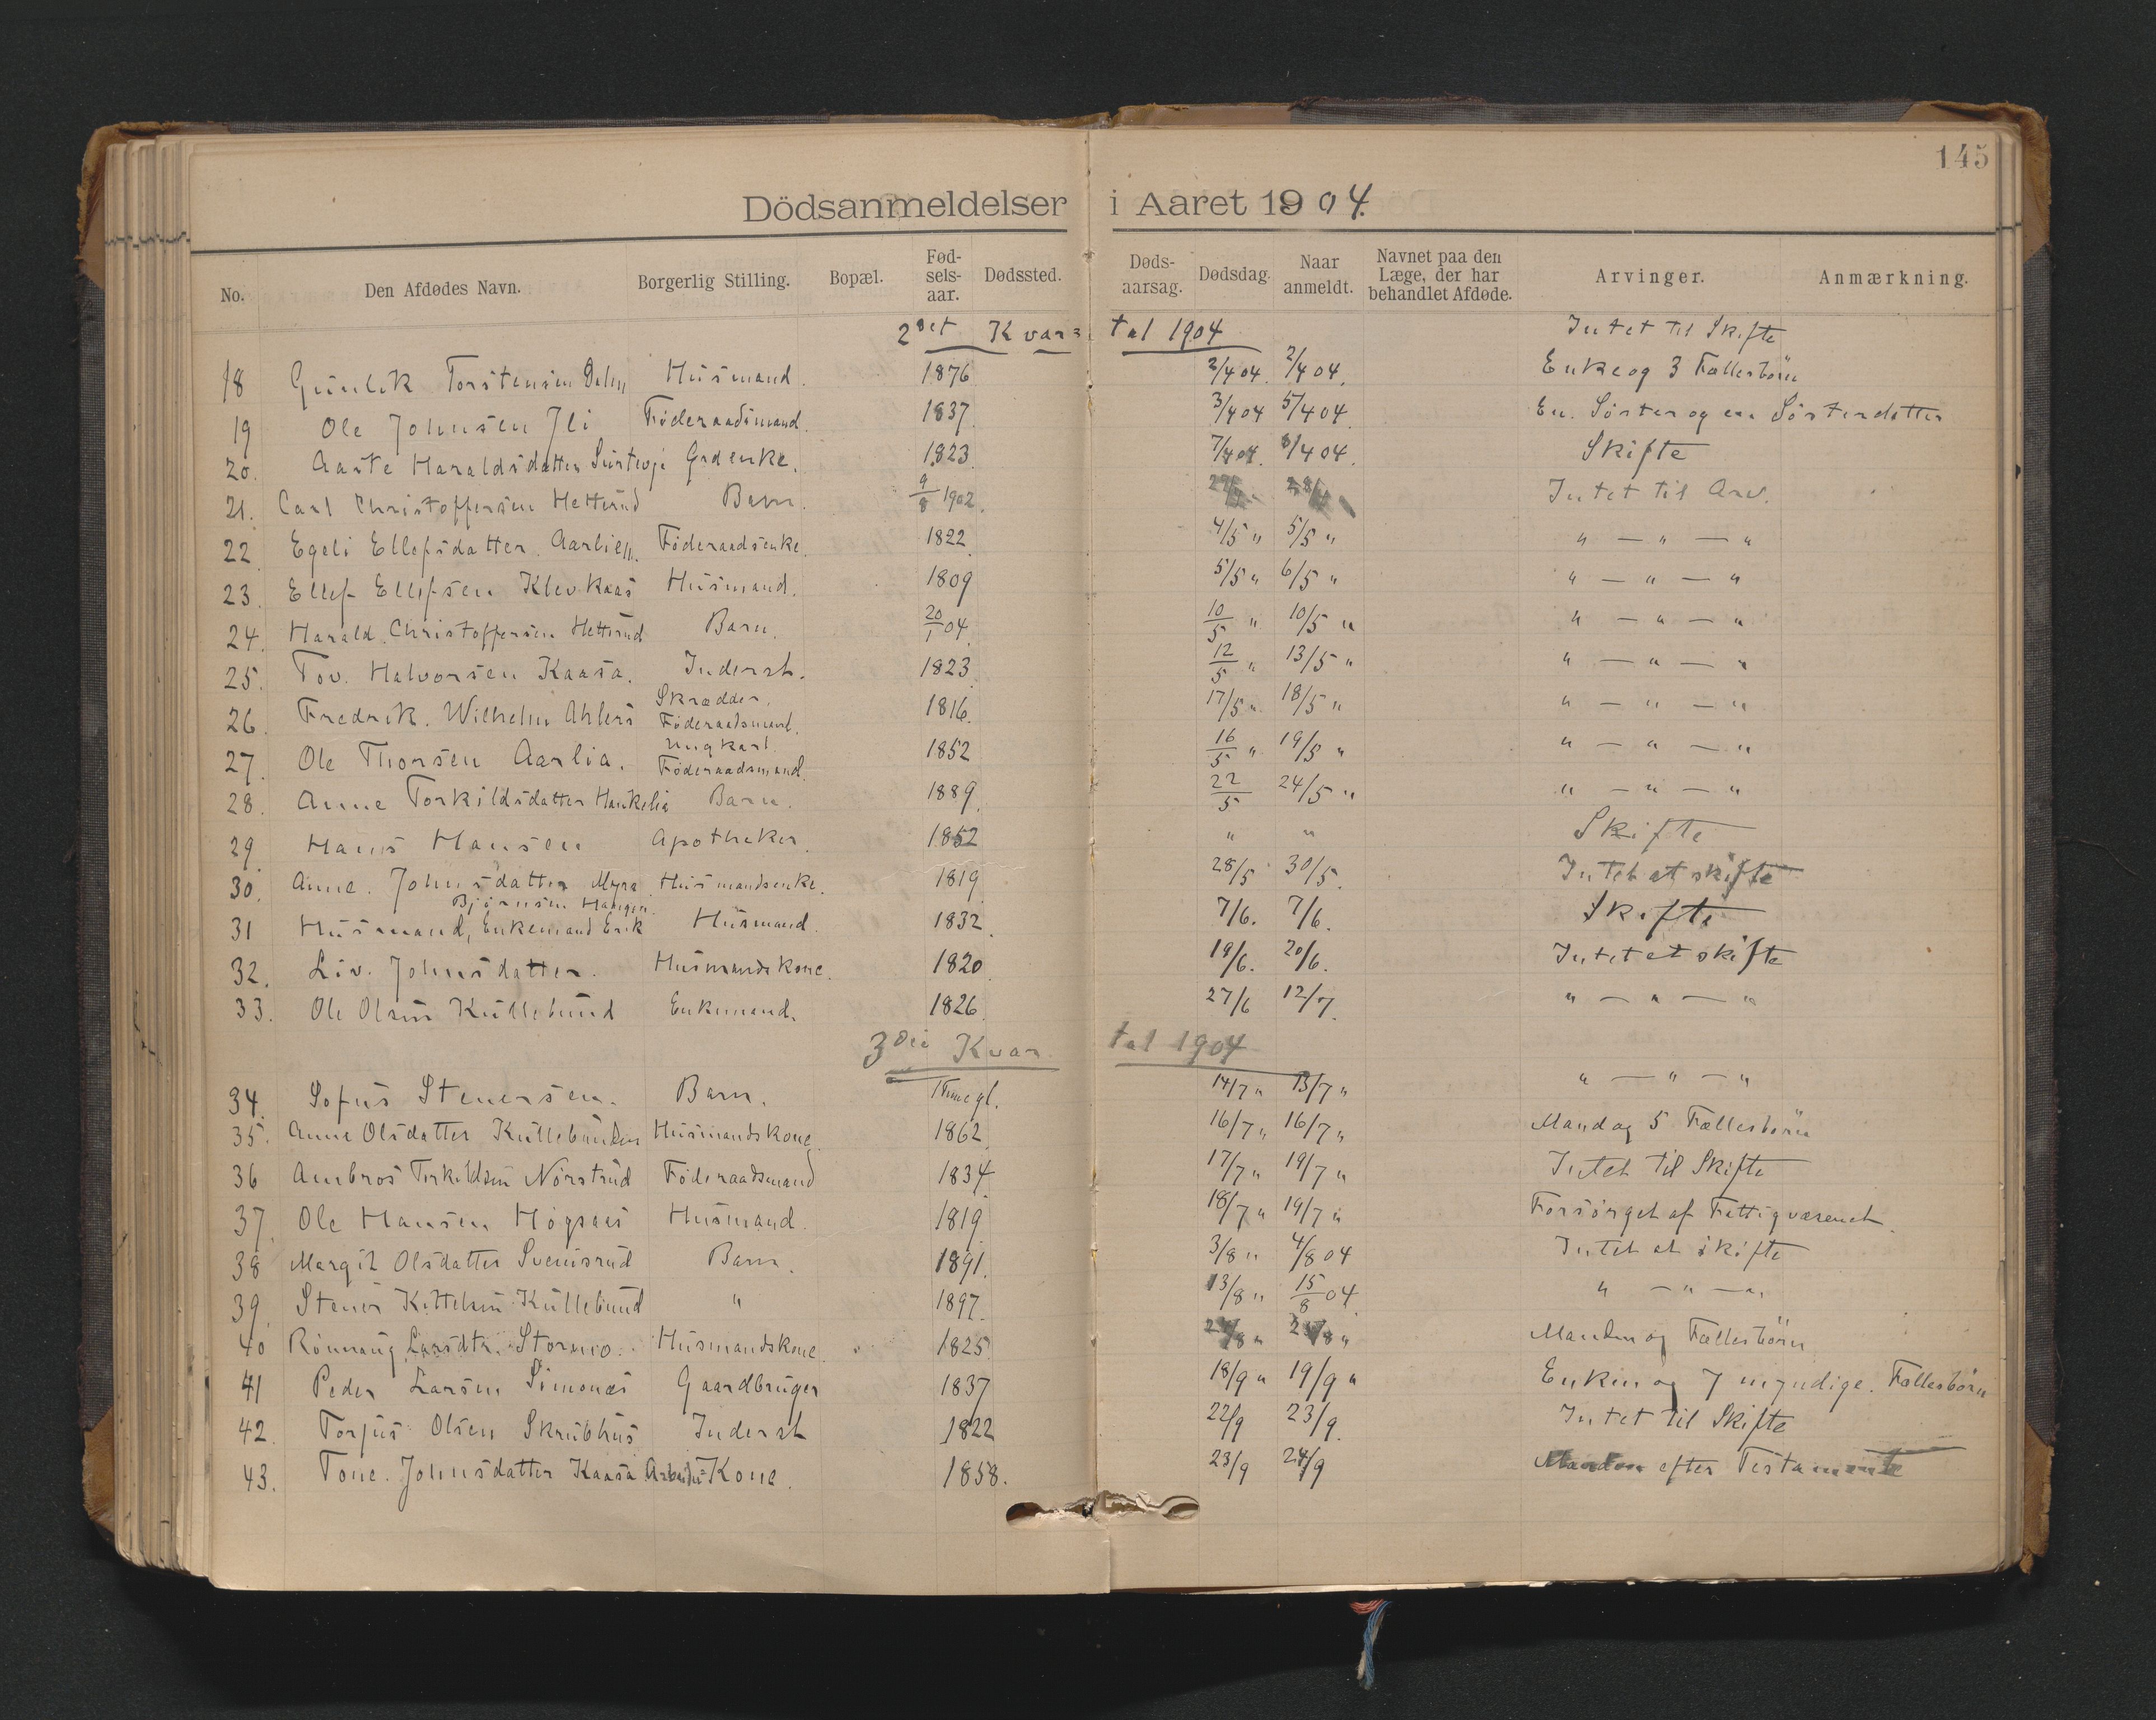 145
Dödsanmeldelser i Aaret 1904.
No. Den Afdødes Navn. Borgerlig Stilling. Bopæl. Fød-sels-aar. Dødssted. Døds-aarsag. Dødsdag. Naar anmeldt. Navnet paa den Læge, der har behandlet Afdøde. Arvinger. Anmærkning.
2det Kvartal 1904 Intet til Skifte
18 Gunlek Torstensen Dalen Husmand. 1876 2/4 04. 2/4 04. Enke og 3 Fællesbörn
19 Ole Johnsen Jli Föderaadsmand. 1837. 3/4 04 5/4 04 En Söster og en Sösterdatter
20. Aaste Haraldsdatter Grdenke. 1823 7/4 04. 8/4 04. Skifte
21. Carl Christoffersen Hetterud Barn. 9/8 1902. Intet til Arv.
22 Egeli Ellefsdatter Aarlien. Föderaadsenke. 1822 4/5 " 5/5 " " — " — "
23. Ellef Ellefsen Klevkaas Husmand. 1809 5/5 " 6/5 " " — " — "
24. Harald Christoffersen Hetterud Barn. 20/1 04. 10/5 " 10/5 " " — " — "
25. Tov. Halvorsen Kaasa. Inderst. 1823 12/5 " 13/5 " " — " — "
26. Fredrik. Wilhelm Ahlers Skrædder. Föderaadsmand. 1816. 17/5 " 18/5 " " — " — "
27. Ole Thorsen Aarlia. Ungkarl. Föderaadsmand. 1852 16/5 " 19/5 " " — " — "
28. Anne Torkildsdatter Haukelia Barn. 1889. 22/5 24/5 " " — " — "
29. Hans Hansen Apotheker. 1852 " " Skifte
30. Anne. Johnsdatter Myra Husmandsenke. 1819 28/5 30/5. Intet at skifte
Björnsen Haugen
31 Husmand, Enkemand Erik Husmand. 1832. 7/6. 7/6. Skifte
32. Liv. Johnsdatter. Husmandskone. 1820 19/6. 20/6. Intet at skifte
33. Ole Olsen Kullebund Enkemand. 1826. 27/6 12/7. " — " — "
3die Kvartal 1904
34. Sofus Stenersen. Barn. 1 Time gl. 14/7 " 15/7 " " — " — "
35. Anne Olsdatter Kullebunden Husmandskone 1862. 16/7 " 16/7 " Mand og 5 Fællesbörn
36 Ambros Terkildsen Nörstrud Föderaadsmand 1834. 17/7 " 19/7 " Intet til Skifte
37. Ole Hansen Högsaas Husmand. 1819. 18/7 " 19/7 " Forsörget af Fattigvæsenet.
38 Margit Olsdatter Svenisrud Barn. 1891. 3/8 " 4/8 04 Intet at skifte
39. Stener Kittelsen Kullebund " 1897. 13/8 " 15/8 04. " — " — "
40 Rönnaug Larsdtr. Stormo. Husmandskone. 1825. Manden og Fællesbörn
41 Peder Larsen Simonæs Gaardbruger 1837 18/9 " 19/9 " Enken og 7 myndige. Fællesbörn
42. Torjus Olsen Skrubhus Inderst 1822 22/9 23/9. Intet til Skifte
43. Tone. Johnsdatter Kaasa Arbeider-Kone. 1858. 23/9 24/9 Manden efter Testamente